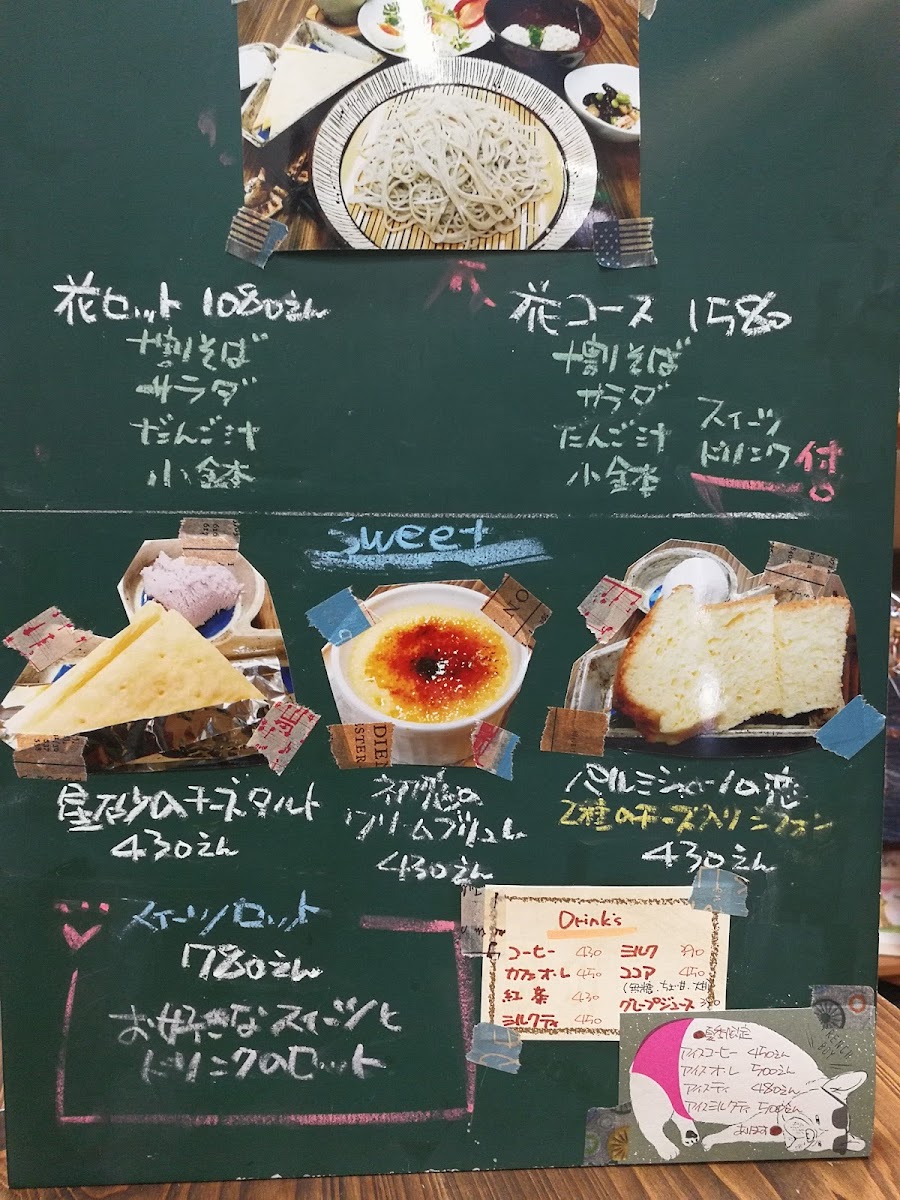 花セット 1080えん
十割そば
サラダ
だんご汁
小鉢
花コース 1580
十割そば
サラダ
だんご汁
小鉢
スイーツ
ドリンク付
Sweet
星砂のチーズタルト
430えん
初恋の
クリームブリュレ
430えん
パルミジャーノの恋
2種のチーズ入りシフォン
430えん
スイーツセット
780えん
お好きなスイーツと
ドリンクのセット
Drink's
コーヒー 430
カフェオーレ 450
紅茶 430
ミルクティ 450
ミルク 390
ココア 450
グレープジュース
夏季限定
アイスコーヒー 450えん
アイスオーレ 500えん
アイスティ 480えん
アイスミルクティ 500えん
あります